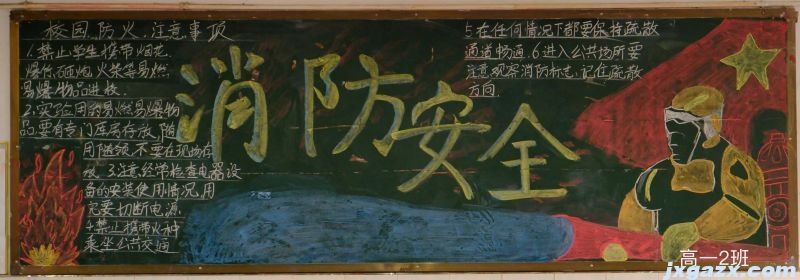 校园防火注意事项
1.禁止学生携带烟花、
爆竹、砸炮、火柴等易燃
易爆物品进校.
2.实验用的易燃易爆物
品要有专门库房存放,随
用随领,不要在现场存
放 3.注意经常检查电器设
备的安装使用情况,用
完要切断电源.
4.禁止携带火种
乘坐公共交通
消防安全
5.在任何情况下都要保持疏散
通道畅通.6.进入公共场所要
注意观察消防标志,记住疏散
方向.
高一2班
jxgazx.com